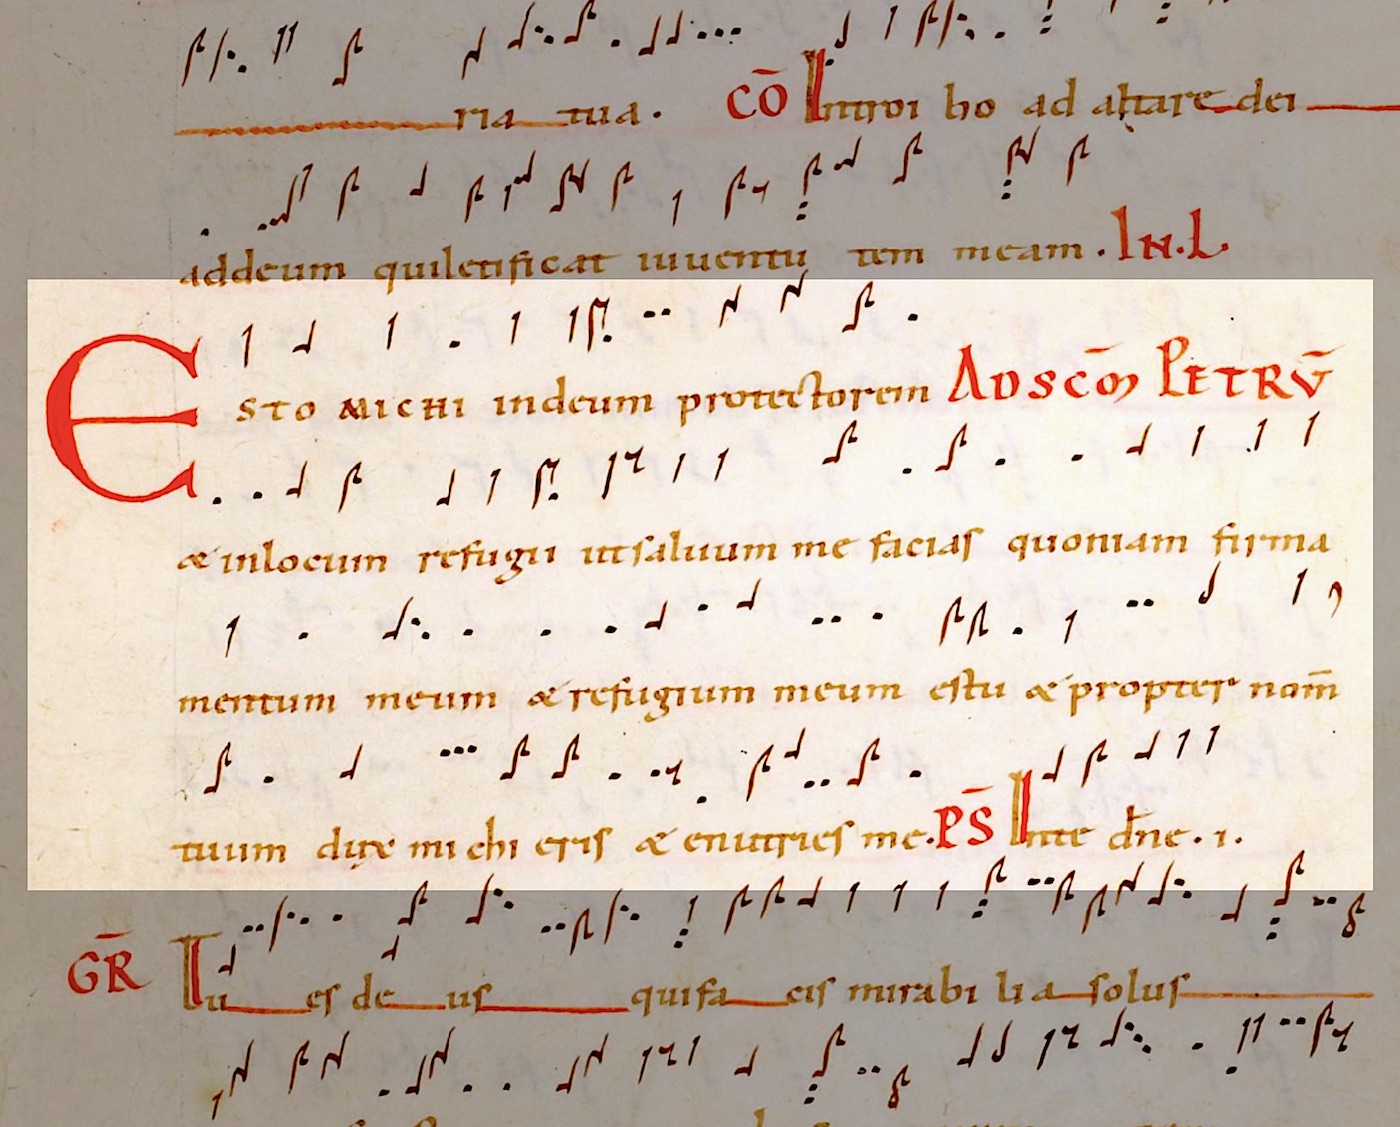 ria tua. CO Introi bo ad altare dei
addeum quiletificat iuuentu tem meam. IN. L
ESTO MICHI indeum protectorem AD SCM PETRU
& inlocum refugii utsaluum me facias quoniam firma
mentum meum & refugium meum estu & propter nom̄
tuum dux mi chi eris & enutries me. PS Inte dn̄e. i.
GR Tu es de us quifa cis mirabi li a solus